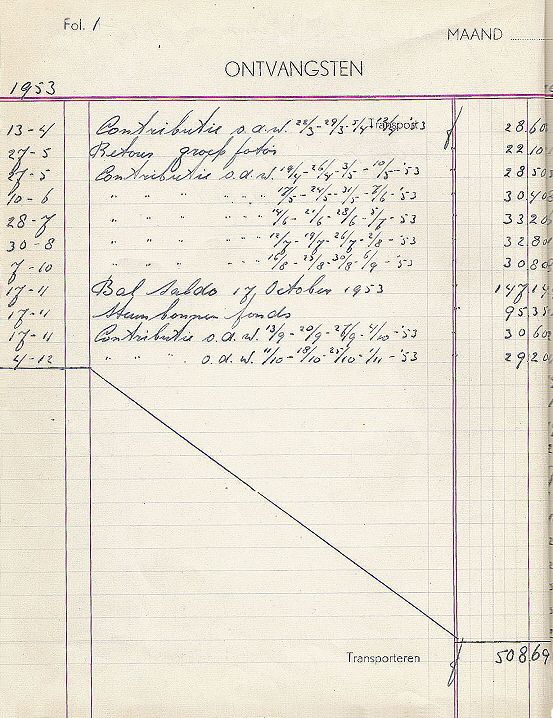 Fol. 1
MAAND
ONTVANGSTEN
1953
13-4 Contributie o.d.w. 22/3-29/3-5/4-12/4-'53 Transport ƒ 28.60
27-5 Retour groepfoto's 22.10
27-5 Contributie o.d.w. 19/4-26/4-3/5-10/5-'53 28.50
10-6 " " " " " 17/5-24/5-31/5-7/6-'53 30.40
28-7 " " " " " 14/6-21/6-28/6-5/7-53 33.20
30-8 " " " " " 12/7-19/7-26/7-2/8-'53 32.80
7-10 " " " " " 16/8-23/8-30/8-6/9-'53 30.80
17-11 Bal Saldo 17 October 1953 147.14
17-11 Steunbonnen fonds 95.35
17-11 Contributie o.d.w. 13/9-20/9-27/9-4/10-'53 30.60
4-12 " " " o.d.w. 11/10-18/10-25/10-1/11-'53 29.20
Transporteren ƒ 508.69